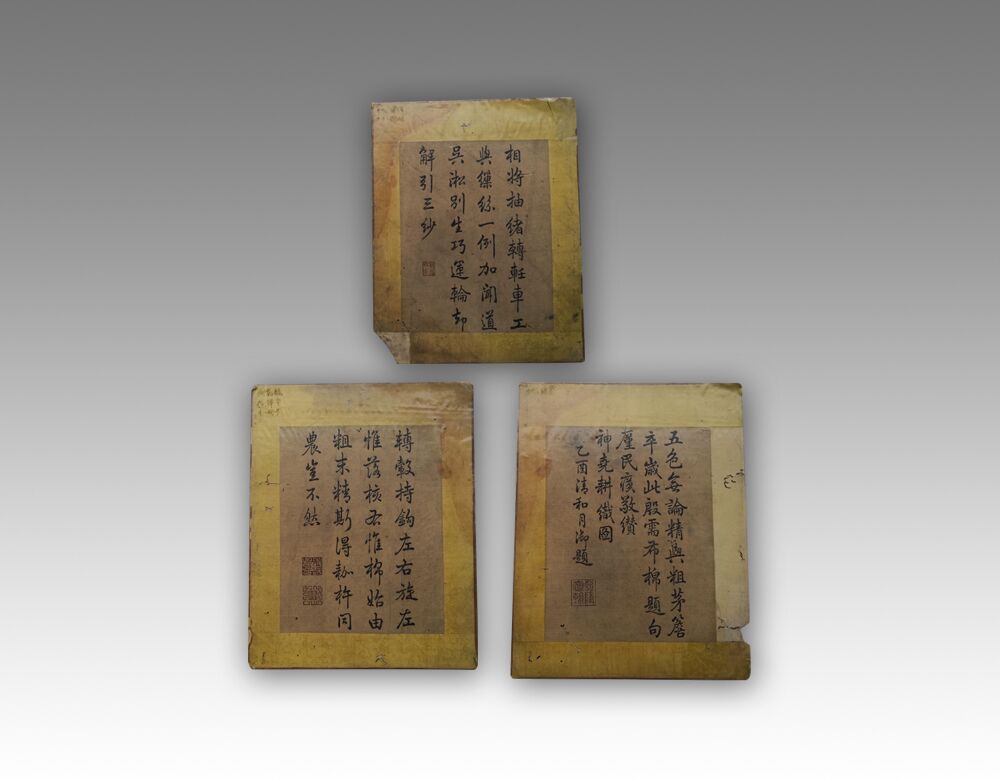 相將抽緒轉軠車工
與繅絲一例加聞道
吳淞別生巧運輪却
解引三紗
轉轂持鉤左右旋左
惟落核右惟棉始由
粗末精斯得耞杵同
農豈不然
五色無論精與粗茅簷
卒歲此殷需布棉題句
廑民瘼敬纘
神堯耕織圖
乙酉清和月御題